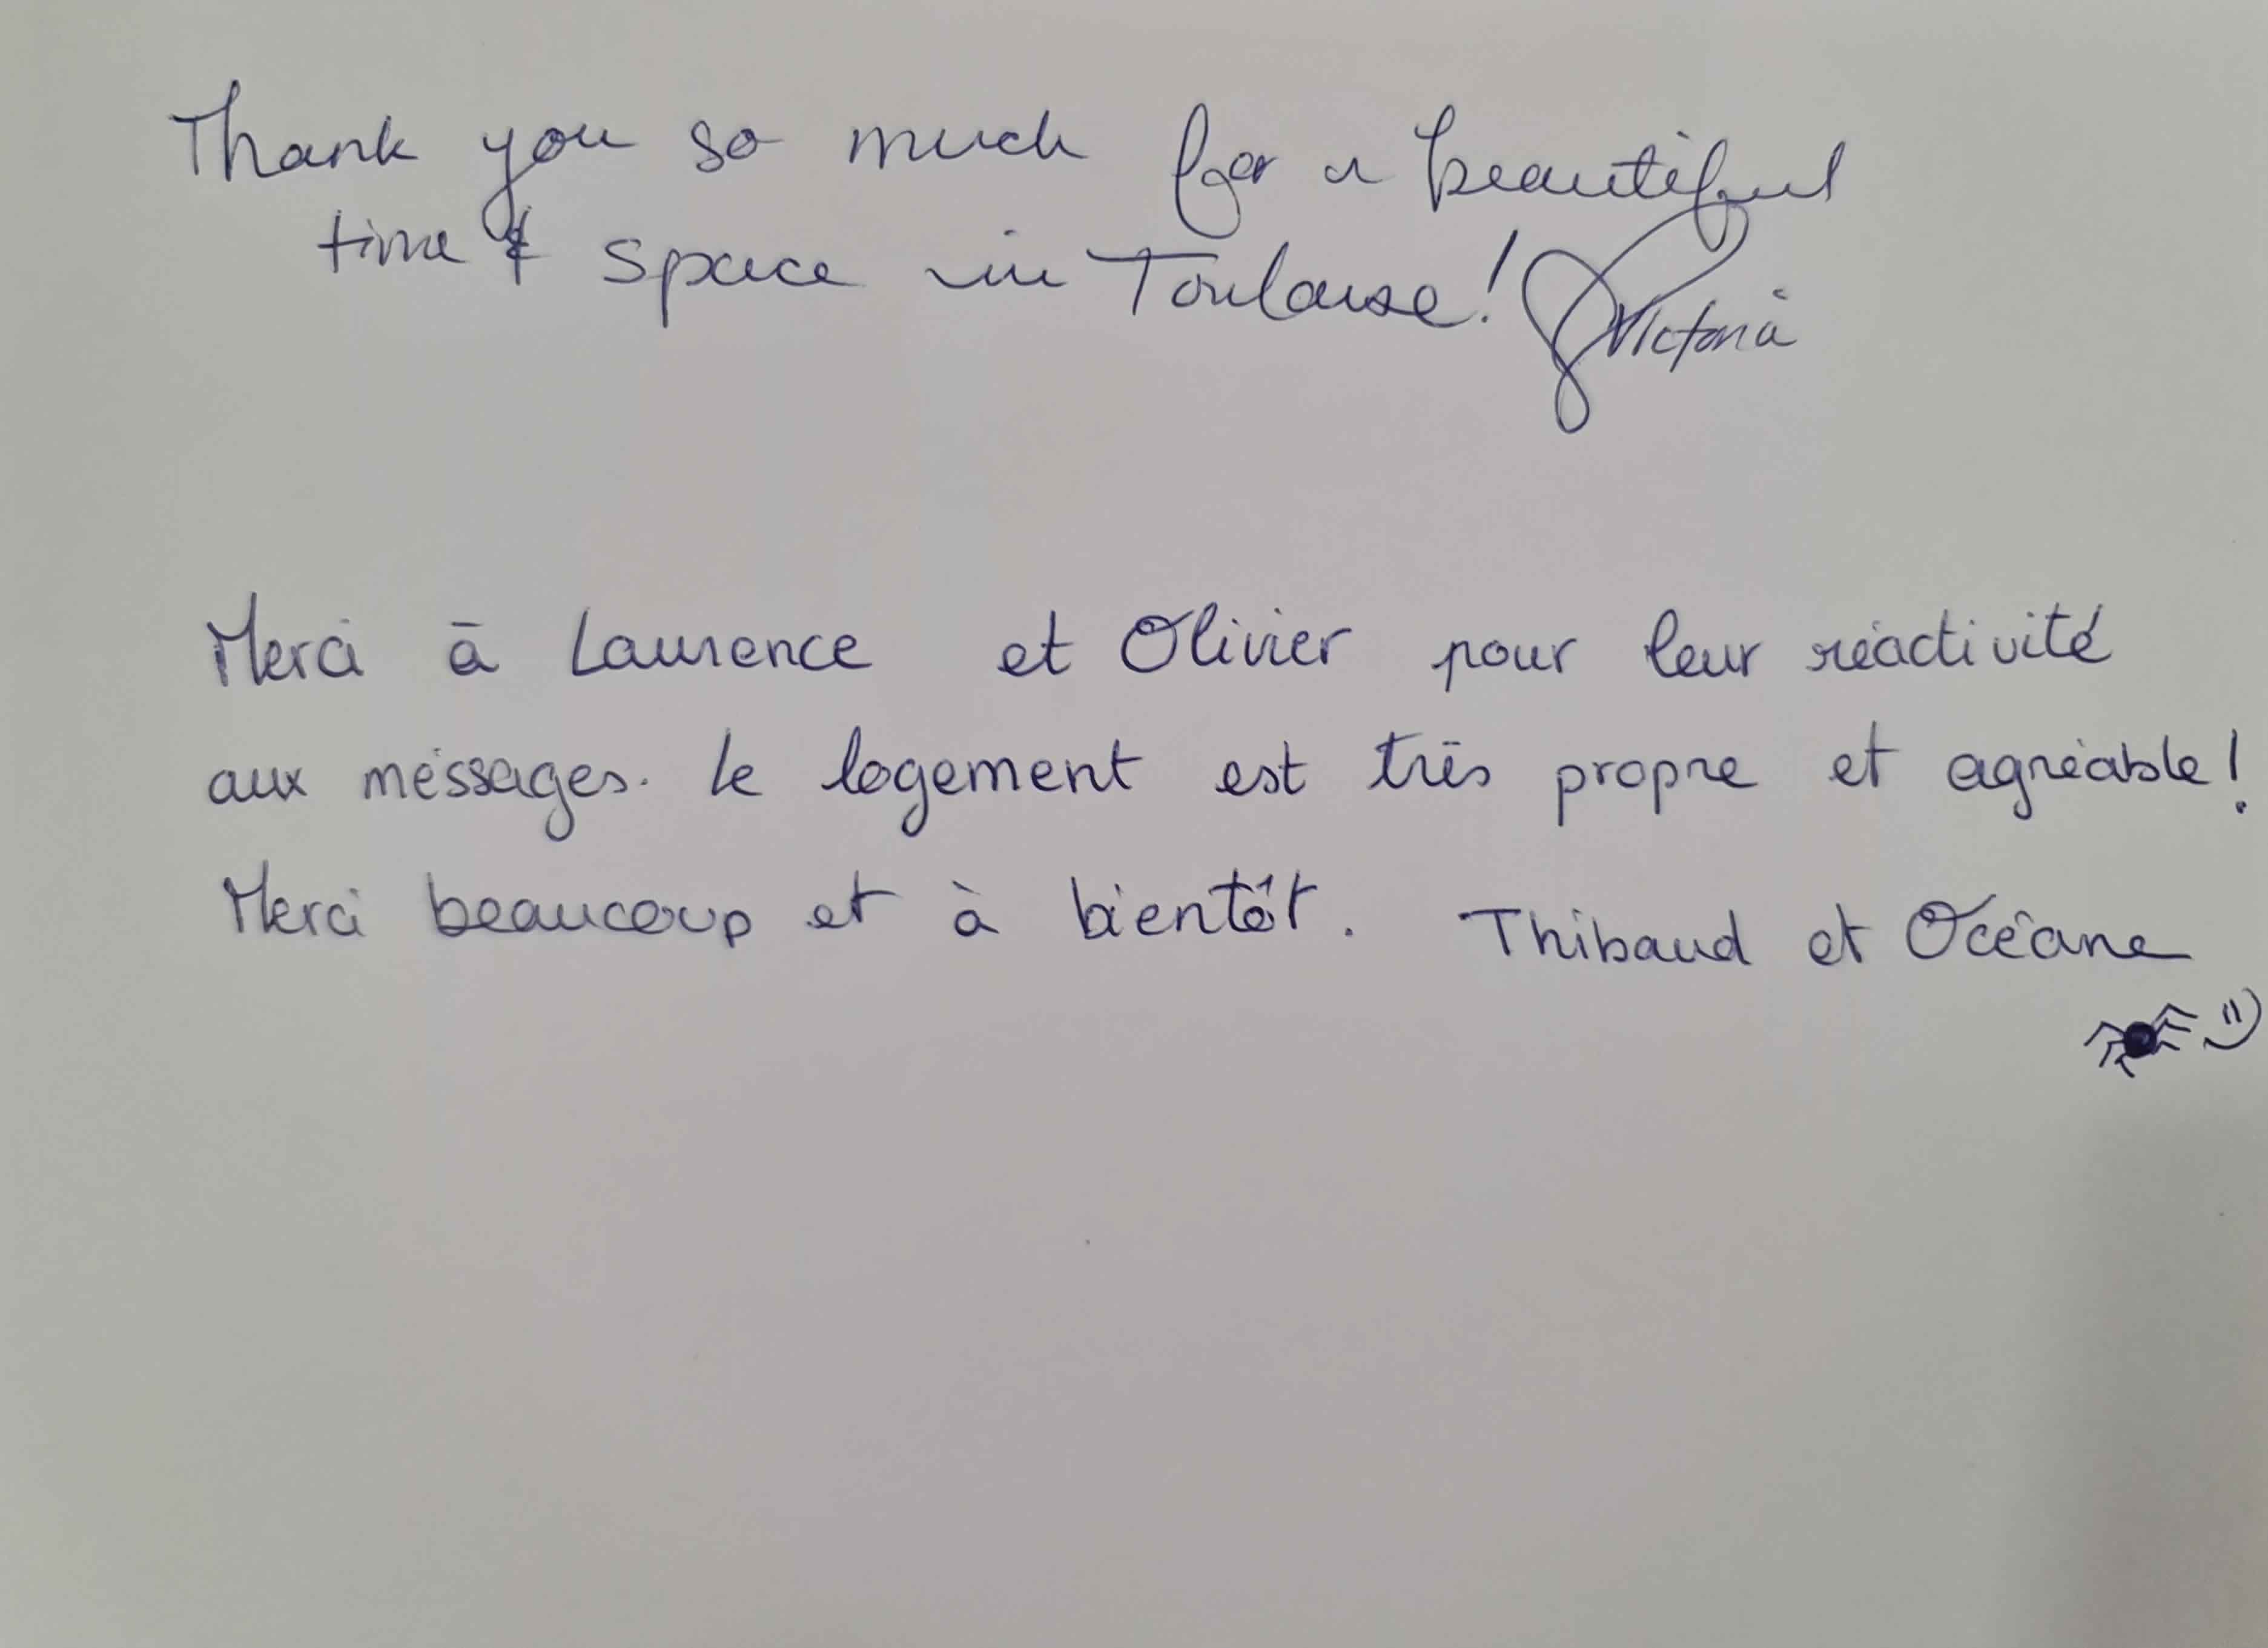 Thank you so much for a beautiful
time & space in Toulouse! Victoria
Merci à Laurence et Olivier pour leur réactivité
aux méssages. Le logement est très propre et agréable!
Merci beaucoup et à bientôt. Thibaud et Océane
=)